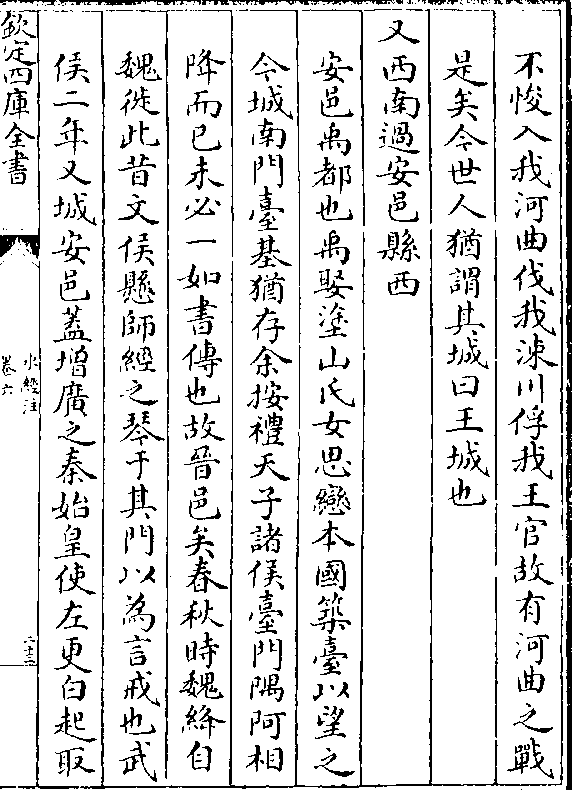 不悛入我河曲伐我涑川俘我王官故有河曲之戰
是矣今世人猶謂其城曰王城也
又西南過安邑縣西
安邑禹都也禹娶塗山氏女思戀本國築臺以望之
今城南門臺基猶存余按禮天子諸侯臺門隅阿相
降而已未必一如書傳也故晉邑矣春秋時魏絳自
魏徙此昔文侯懸師經之琴于其門以為言戒也武
侯二年又城安邑蓋增廣之秦始皇使左更白起取
欽定四庫全書
水經注
卷六
二十二